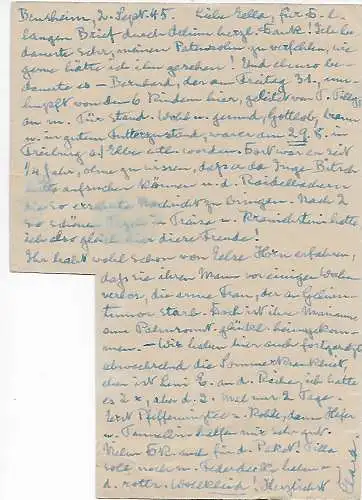 Bensheim, 2. Sept. 45. Liebe Ella, für D. l.
langen Brief durch Achim herzl. Dank! Ich be-
dauerte sehr, meinen Patensohn zu verfehlen, wie
gerne hätte ich ihn gesehen! Und ebenso be-
dauerte es - Bernhard, der am Freitag 31., um-
hüpft von den 6 Kindern hier, geleitet von
an m. Tür stand. Wohl u. gesund, Gottlob, braun
u. in gutem Futterzustand, war er am 29. 8. in
a/ Elbe entl. worden. Dort war er seit
1/4 Jahr, ohne zu wissen, daß er da Inge Bitsch
hätte aufsuchen können u. d.
die so ersehnte Nachricht zu bringen. Nach 2
so schönen in Traisa u. Kranichstein hatte
ich also gleich hier diese Freude!
Ihr habt wohl schon von Else Horn erfahren,
daß sie ihren Mann vor einigen Wochen
verlor, die arme Frau, der an
tumor starb. Doch ist ihre Marianne
aus glückl. heimgekom-
men. - Wir haben hier auch fortgesetzt
abwechselnd die Sommerkrankheit,
eben ist Leni E. an d. Reihe, ich hatte
es 2 x, aber d. 2. Mal nur 2 Tage.
Pfefferminztee u. Kohle, dann Hefe
u. Tannalbin helfen mir sehr gut.
Vielen Dk. auch für d. Paket! Tilla
will noch m. Federdecke haben -
d. rotes Wollkleid! Herzlichst